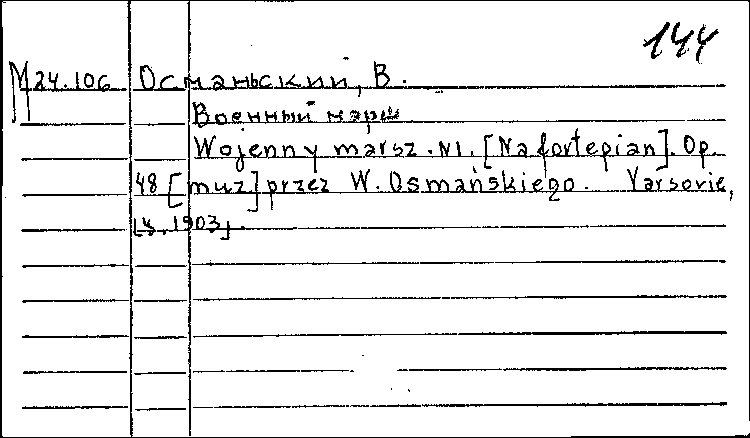 144
M24.106 Османьский, В.
Военный марш
Wojenny marsz. N1. [Na fortepian]. Op.
48 [muz] przez W. Osmańskiego. Varsovie,
1903].